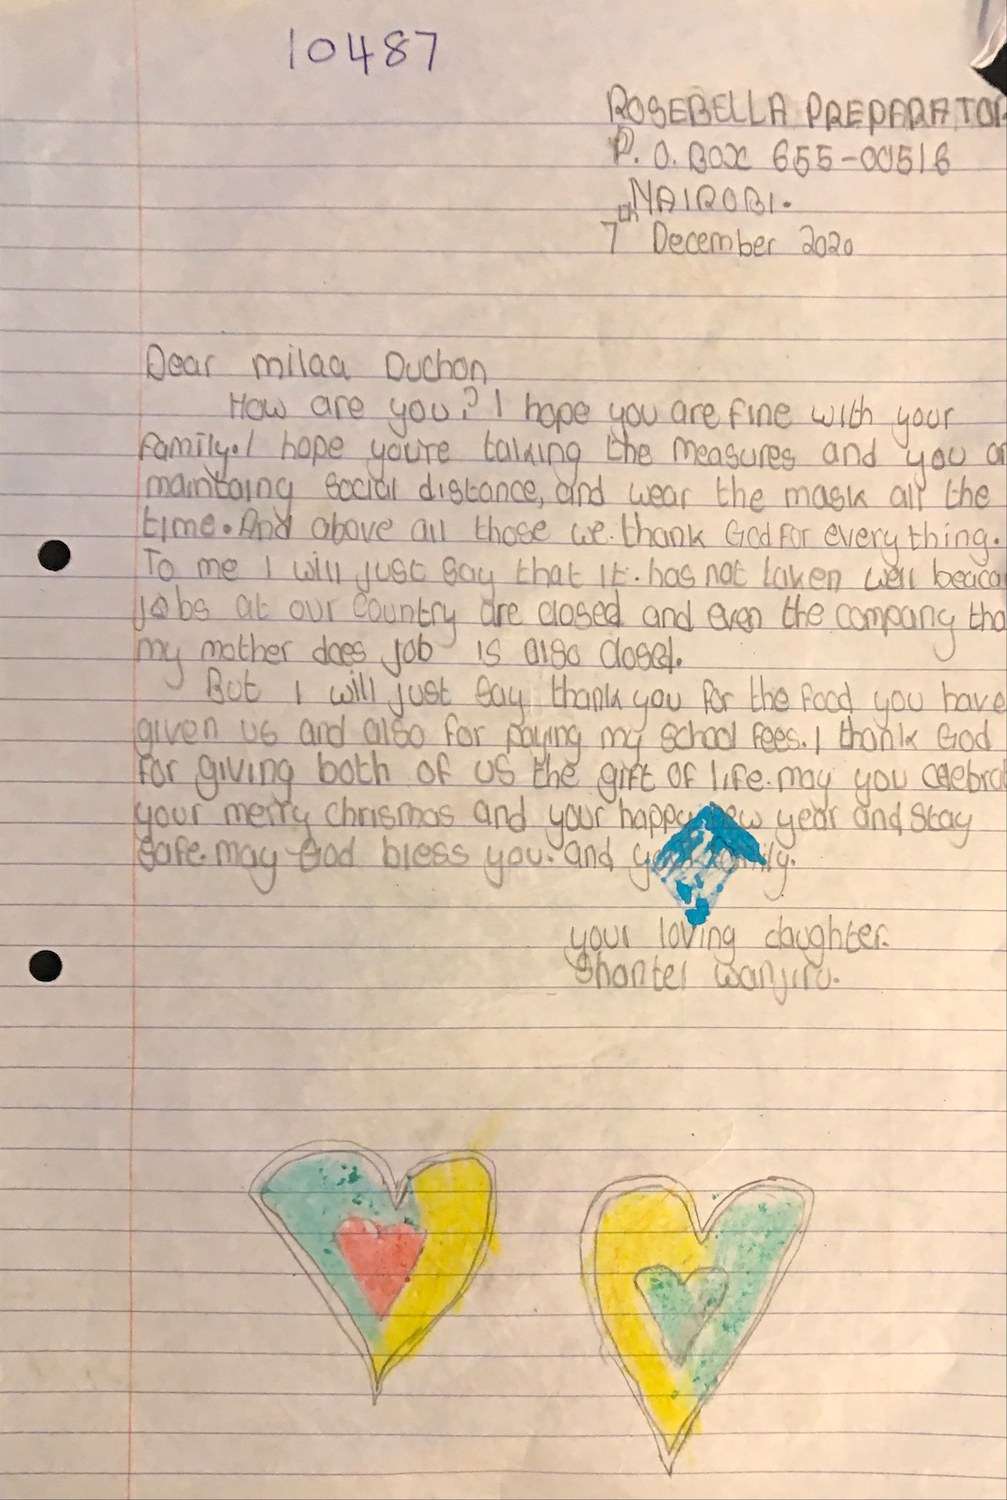 10487
ROSEBELLA PREPARATOR
P. O. BOX 655-00516
NAIROBI.
7th December 2020
Dear milaa Duchon
How are you? I hope you are fine with your
family. I hope you're taking the measures and you ar
maintaing social distance, and wear the mask all the
time. And above all those we thank God for every thing.
To me I will just say that it has not taken well beacau
jobs at our country are closed and even the company tha
my mother does job is also closed.
But I will just say thank you for the food you have
given us and also for paying my school fees. I thank God
for giving both of us the gift of life. may you celebrat
your merry chrismas and your happy new year and stay
safe. may God bless you. and your family.
your loving daughter.
Shantel wanjiru.